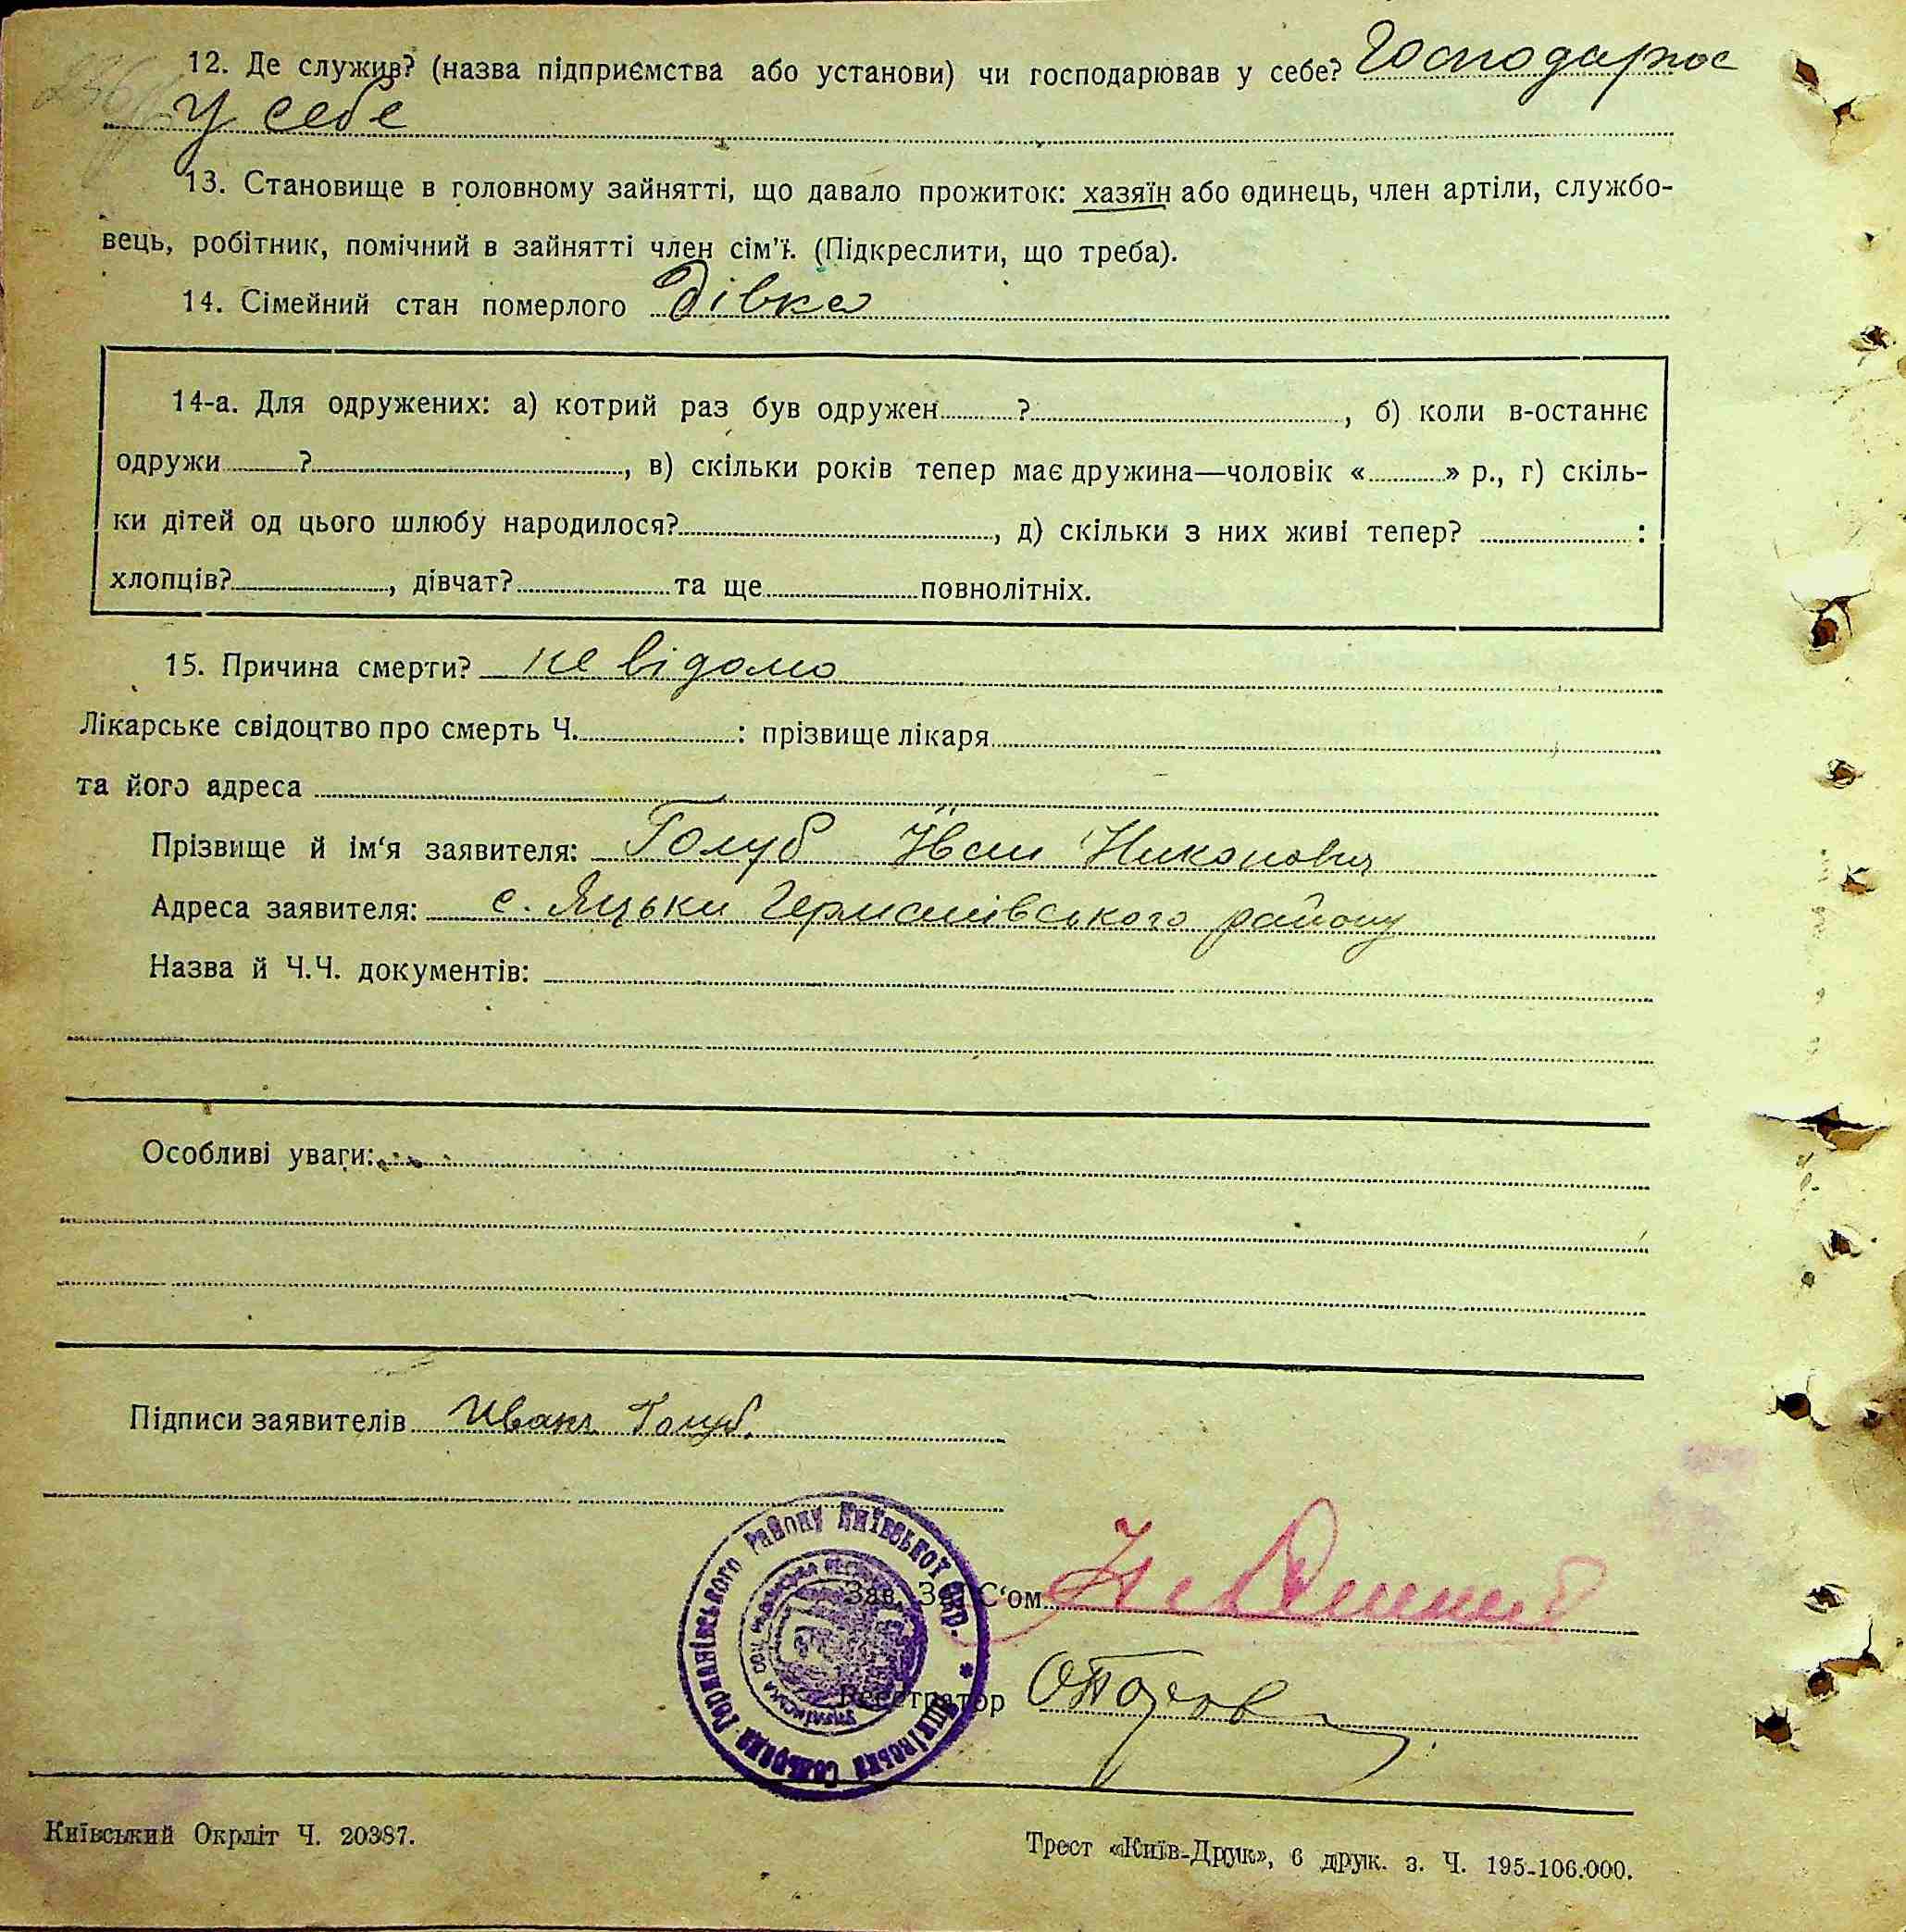 12. Де служив? (назва підприємства або установи) чи господарював у себе? Господарює
у себе
13. Становище в головному зайнятті, що давало прожиток: хазяїн або одинець, член артіли, службо-
вець, робітник, помічний в зайнятті член сім'ї. (Підкреслити, що треба).
14. Сімейний стан померлого Дівка
14-а. Для одружених: а) котрий раз був одружен ? , б) коли в-останнє
одружи ? , в) скільки років тепер має дружина—чоловік « » р., г) скіль-
ки дітей од цього шлюбу народилося? , д) скільки з них живі тепер? :
хлопців? , дівчат? та ще повнолітніх.
15. Причина смерти? не відомо
Лікарське свідоцтво про смерть Ч. : прізвище лікаря
та його адреса
Прізвище й ім'я заявителя: Голуб Іван Никонович
Адреса заявителя: с. Яцьки Германівського району
Назва й Ч.Ч. документів:
Особливі уваги:
Підписи заявителів Иван Голуб.
Зав. ЗАГС'ом
Реєстратор
Яцківська Сельрада Германівського Району Київської Окр.
Київський Окрліт Ч. 20387.
Трест «Київ-Друк», 6 друк. з. Ч. 195-106.000.